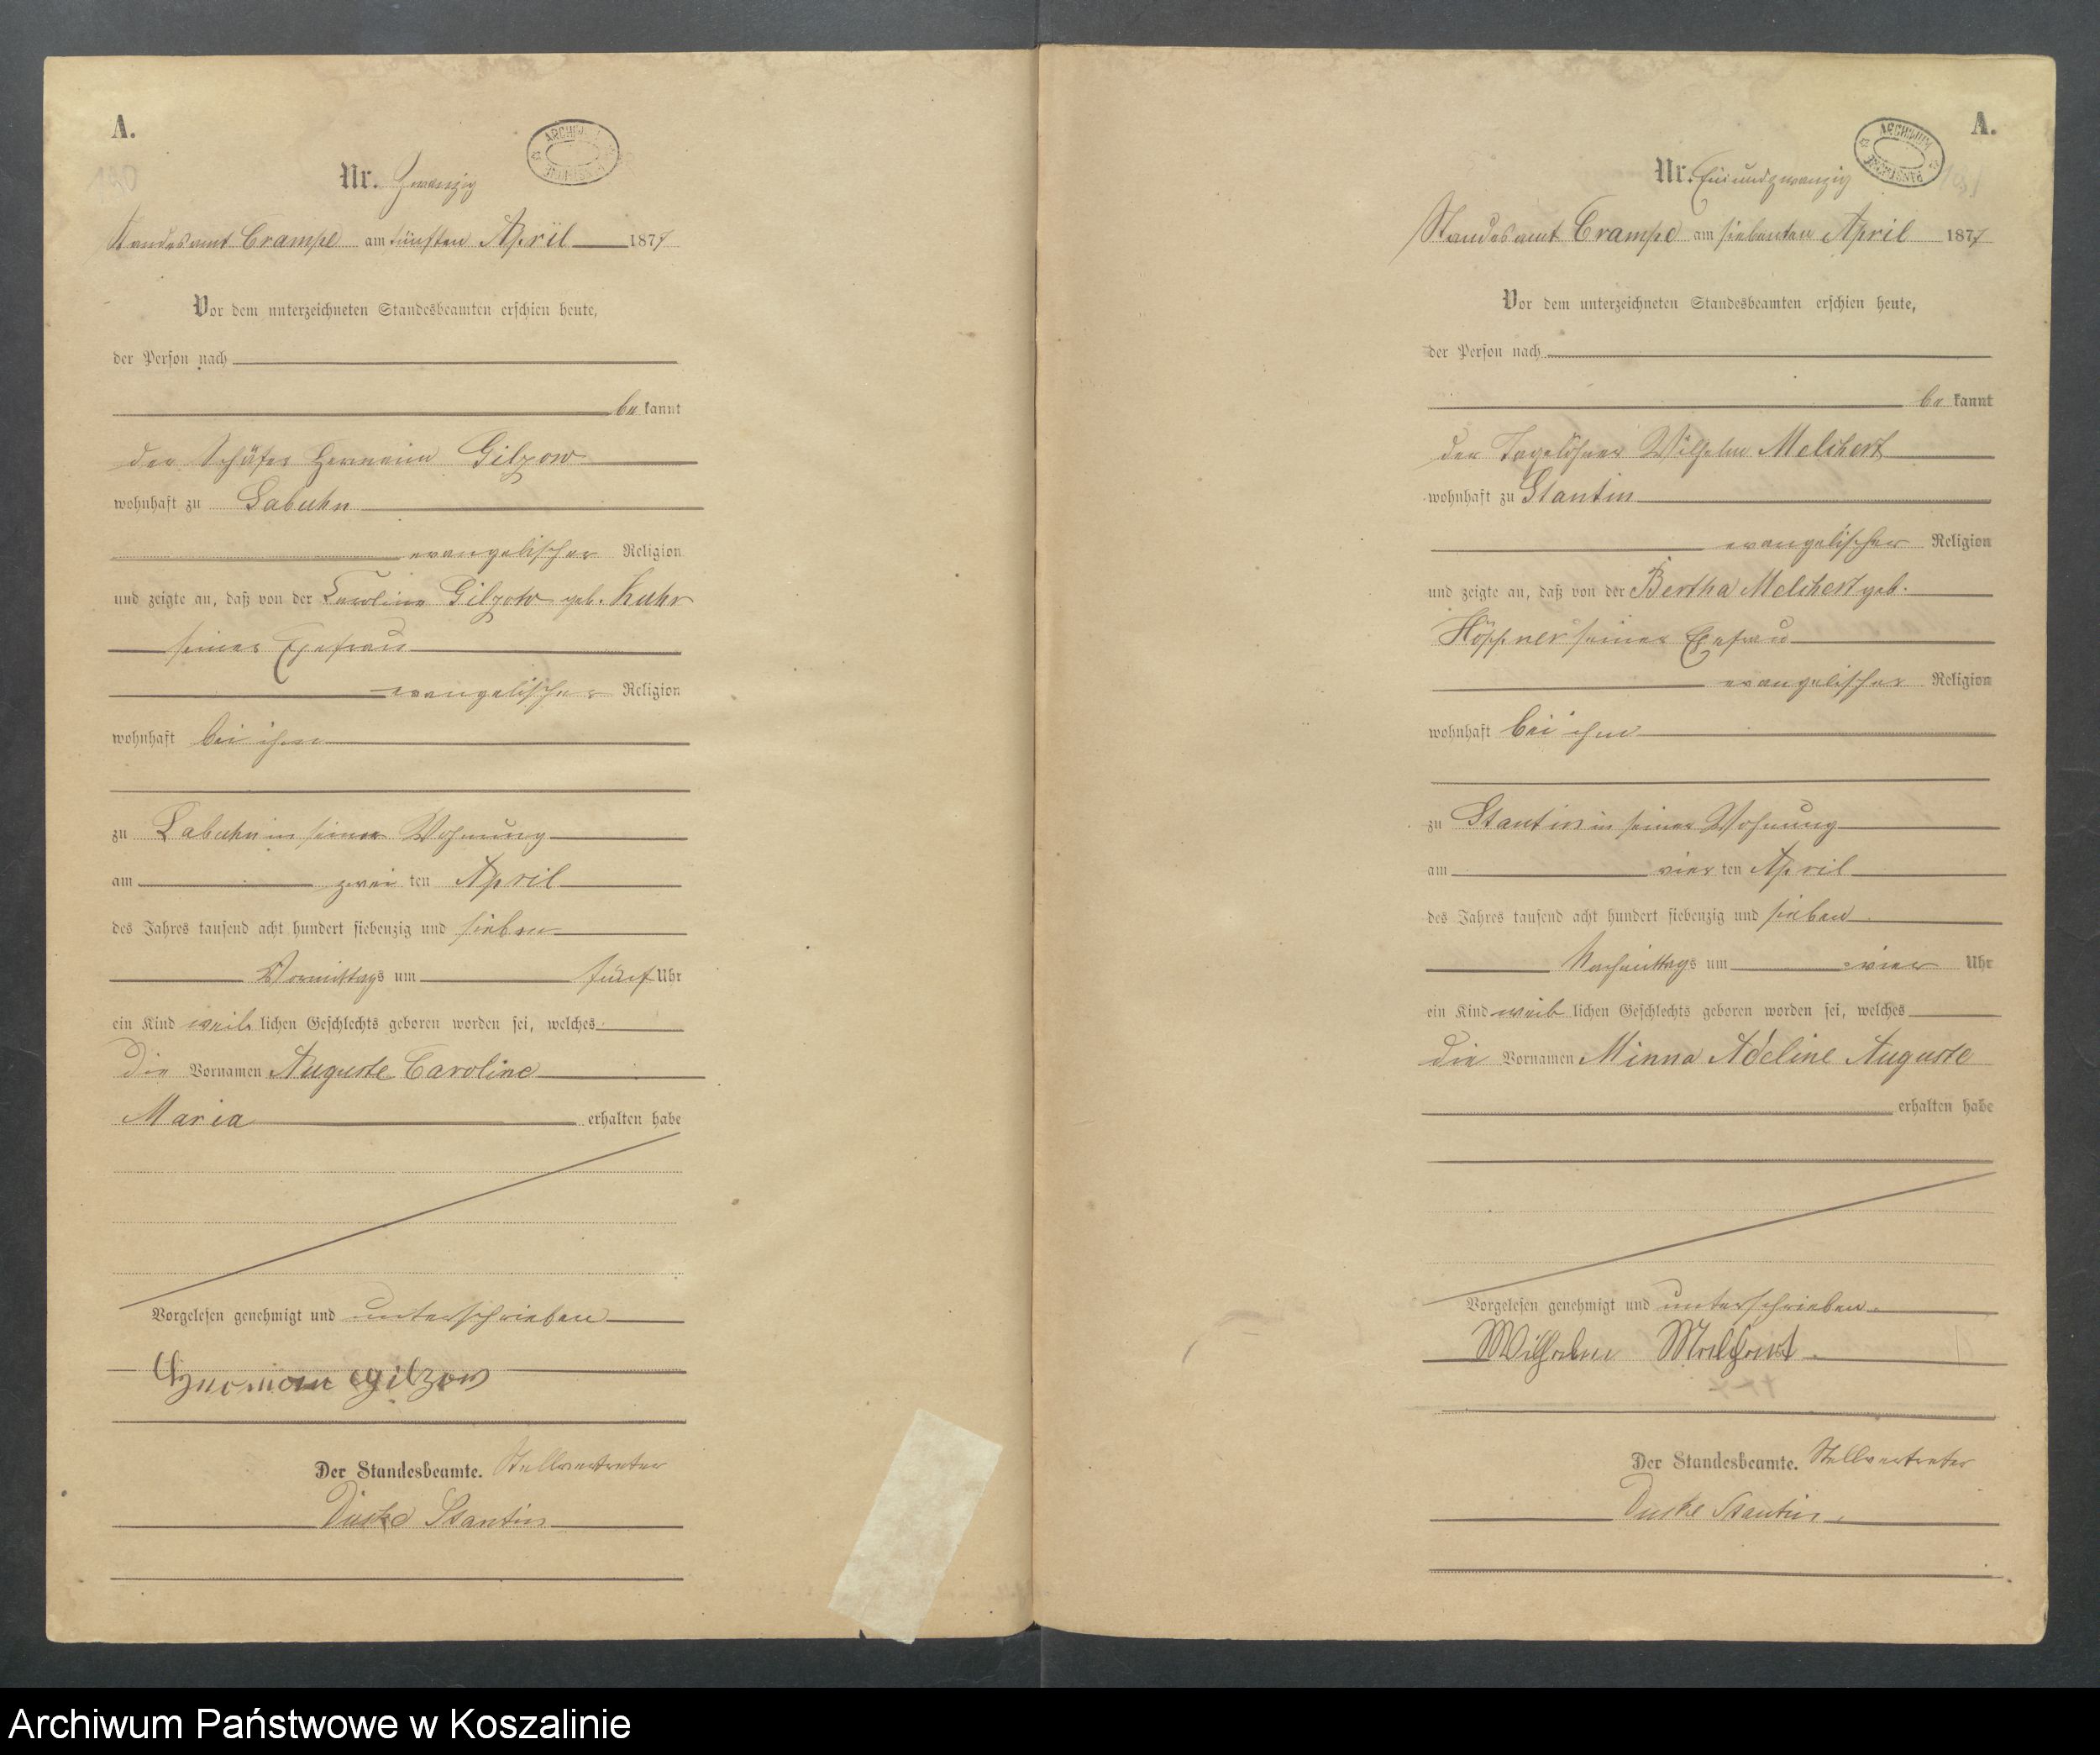 A.
ARCHIWUM
Nr. Zwanzig
Standesamt Crampe am fünften April 1877
Vor dem unterzeichneten Standesbeamten erschien heute,
der Person nach
be kannt
der Schäfer Hermann Gilzow
wohnhaft zu Labuhn
evangelischer Religion
und zeigte an, daß von der Caroline Gilzow geb. Kuhr
seiner Ehefrau
evangelischer Religion
wohnhaft bei ihm
zu Labuhn in seiner Wohnung
am zwei ten April
des Jahres tausend acht hundert siebenzig und sieben
Vormittags um fünf Uhr
ein Kind weib lichen Geschlechts geboren worden sei, welches
die Vornamen Auguste Caroline
Maria erhalten habe
Vorgelesen genehmigt und unterschrieben
Hermann Gilzow
Der Standesbeamte. Stellvertreter
Stantin
A.
ARCHIWUM
Nr. Einundzwanzig
Standesamt Crampe am siebenten April 1877
Vor dem unterzeichneten Standesbeamten erschien heute,
der Person nach
be kannt
der Tagelöhner Wilhelm Melchert
wohnhaft zu Stantin
evangelischer Religion
und zeigte an, daß von der Bertha Melchert geb.
Höppner seiner Ehefrau
evangelischer Religion
wohnhaft bei ihm
zu Stantin in seiner Wohnung
am vier ten April
des Jahres tausend acht hundert siebenzig und sieben
Nachmittags um vier Uhr
ein Kind weib lichen Geschlechts geboren worden sei, welches
die Vornamen Minna Adeline Auguste
erhalten habe
Vorgelesen genehmigt und unterschrieben.
Wilhelm Melchert.
Der Standesbeamte. Stellvertreter
Stantin.
Archiwum Państwowe w Koszalinie